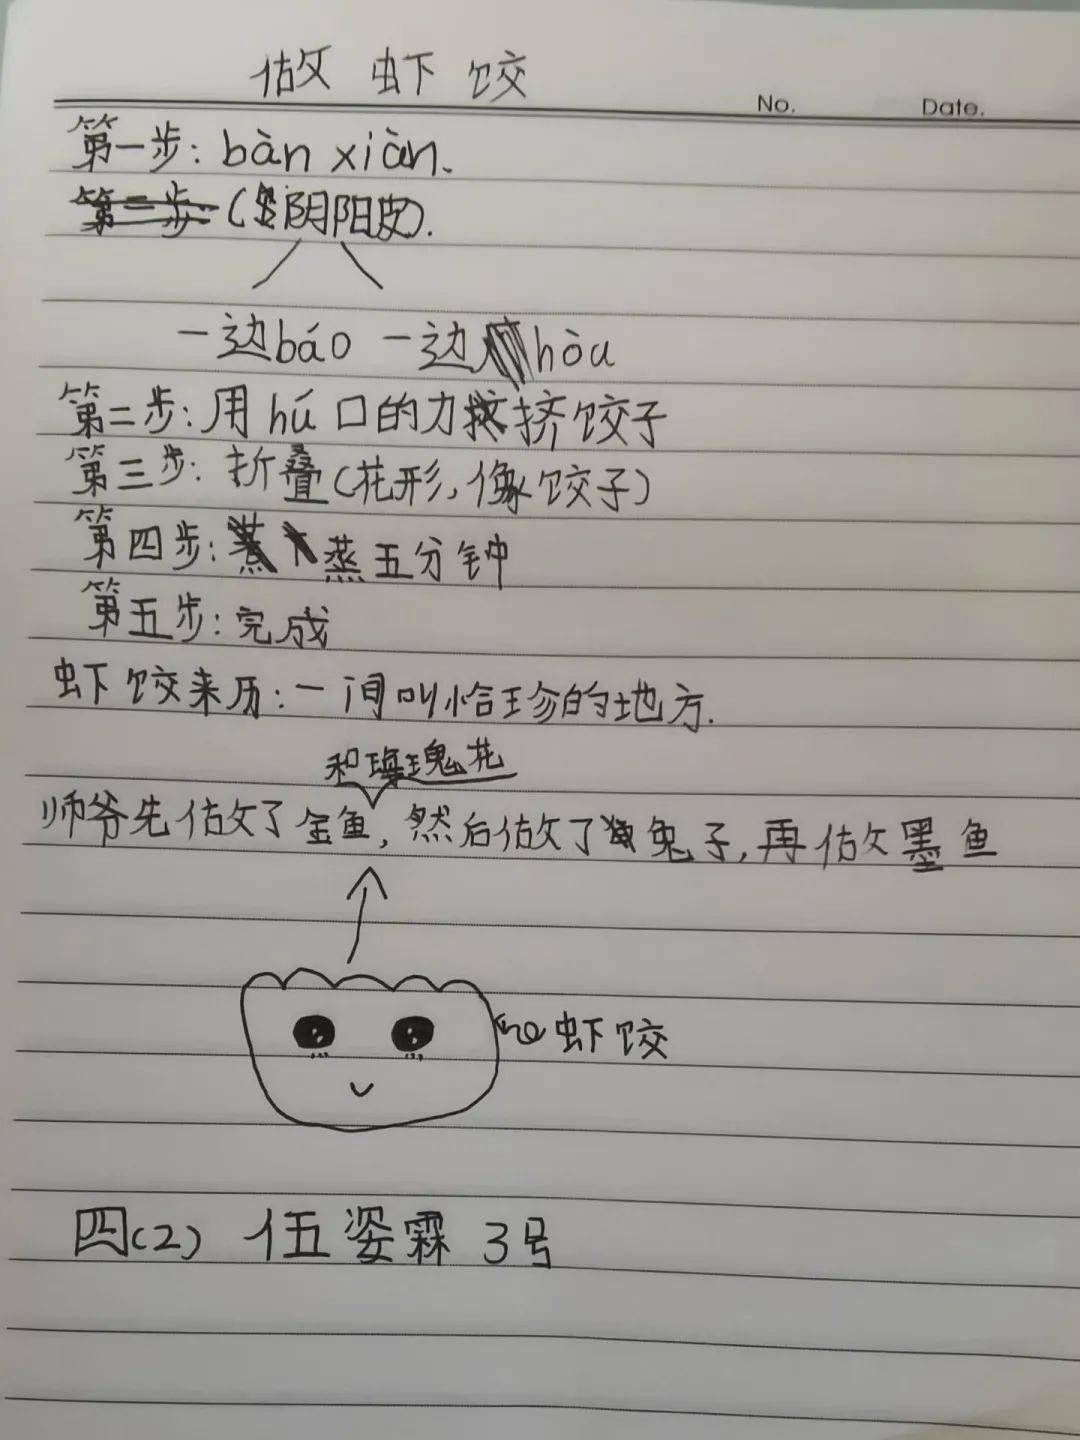 做虾饺
No. Date.
第一步：bàn xiàn.
第二步：（阴阳皮）.
一边báo 一边hòu
第二步：用hú口的力挤饺子
第三步：折叠（花形，像饺子）
第四步：蒸五分钟
第五步：完成
虾饺来历：一间叫怡珍的地方.
和瑰花
师爷先做了金鱼，然后做了兔子，再做墨鱼
虾饺
四（2） 伍姿霖 3号